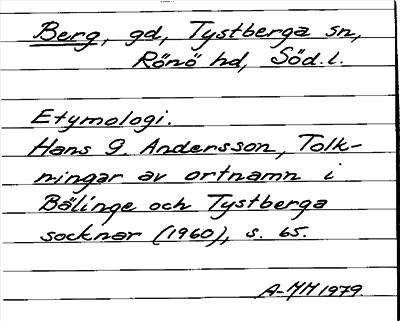 Berg, gd, Tystberga sn,
Rönö hd, Söd. l.
Etymologi.
Hans G. Andersson, Tolk-
ningar av ortnamn i
Bälinge och Tystberga
socknar (1960), s. 65.
A-MM 1979.